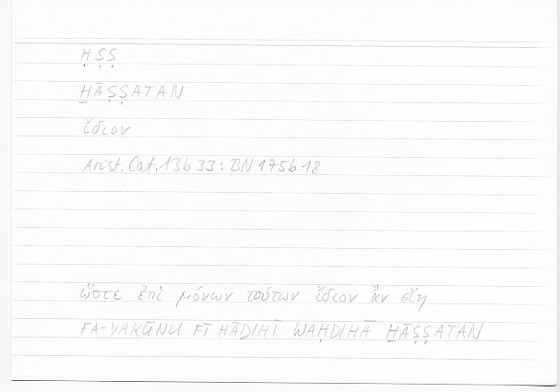 ḤṢṢ
H̱ĀṢṢATAN
ἴδιον
Arist. Cat. 13b33 : BN 175b18
ὥστε ἐπὶ μόνων τούτων ἴδιον ἂν εἴη
FA-YAKŪNU FĪ HĀḎIHĪ WAḤDIHĀ H̱ĀṢṢATAN